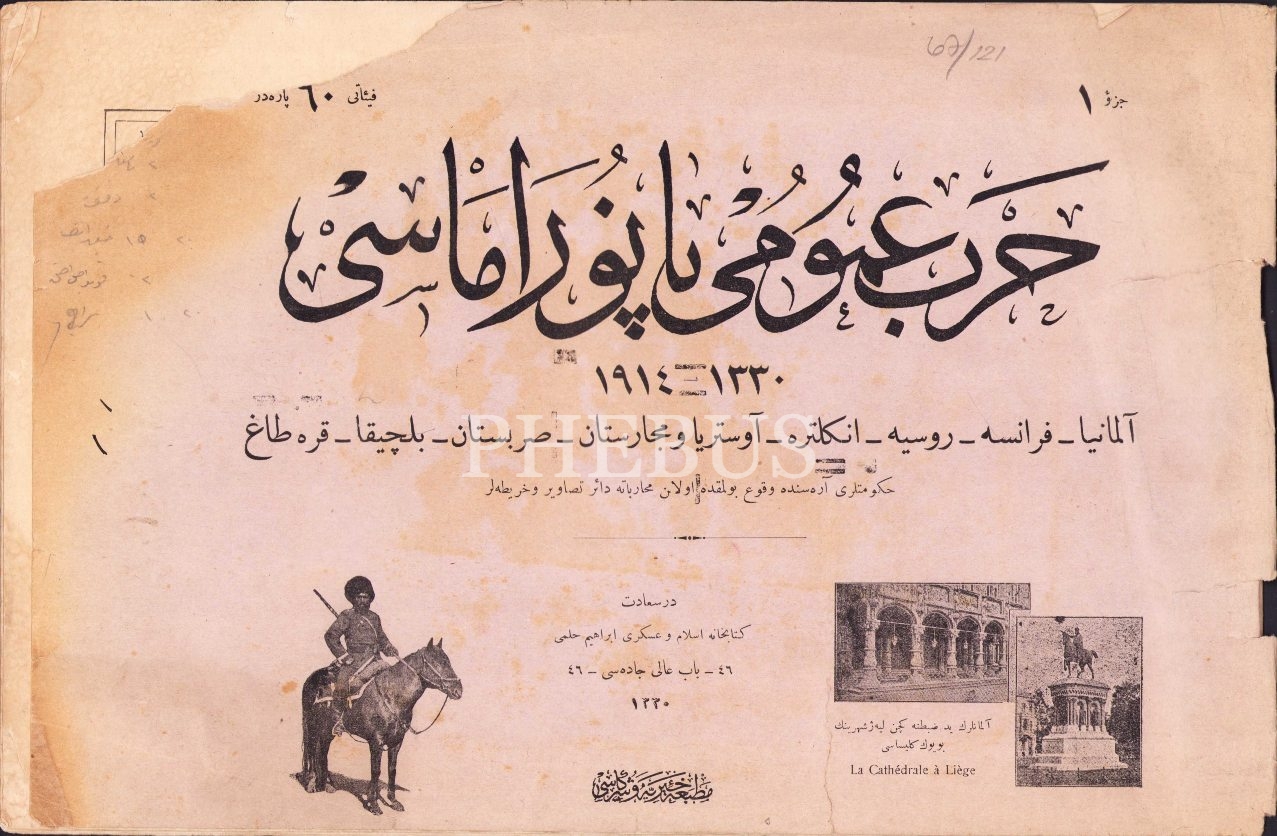 67/121
جزؤ ١
فيئاتى ٦٠ پاره‌در
حرب عمومى پانوراماسى
١٣٣٠ = ١٩١٤
آلمانيا ـ فرانسه ـ روسيه ـ انكلتره ـ آوستريا و مجارستان ـ صربستان ـ بلچيقا ـ قره طاغ
PHEBUS
حكومتلرى آره‌سنده وقوع بولمقده اولان محارباته دائر تصاوير و خريطه‌لر
درسعادت
كتابخانه اسلام و عسكرى ابراهيم حلمى
٤٦ ـ باب عالى جاده‌سى ـ ٤٦
١٣٣٠
آلمانلرك يد ضبطنه كچن ليه‌ژ شهرينك
بويوك كليساسى
La Cathédrale à Liège
مطبعهٔ خيريه و شركاسى